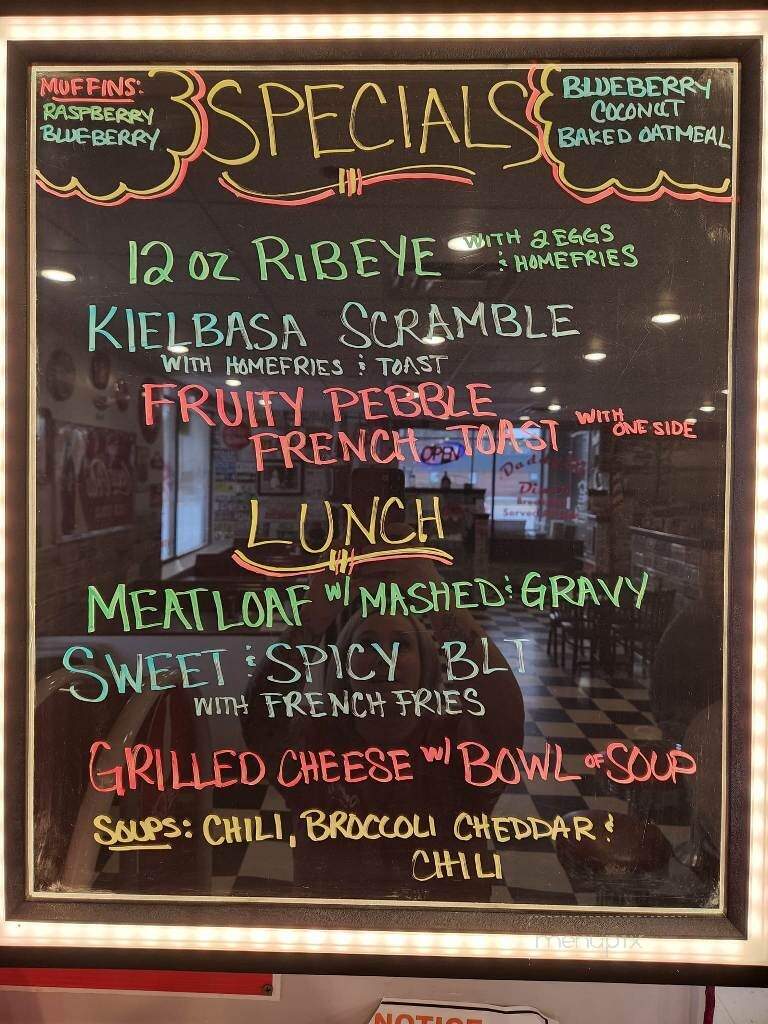 MUFFINS:
RASPBERRY
BLUEBERRY
SPECIALS
BLUEBERRY
COCONUT
BAKED OATMEAL
12 OZ RIBEYE WITH 2 EGGS
& HOMEFRIES
KIELBASA SCRAMBLE
WITH HOMEFRIES & TOAST
FRUITY PEBBLE
FRENCH TOAST WITH
ONE SIDE
OPEN
LUNCH
MEATLOAF W/ MASHED & GRAVY
SWEET & SPICY BLT
WITH FRENCH FRIES
GRILLED CHEESE W/ BOWL OF SOUP
SOUPS: CHILI, BROCCOLI CHEDDAR &
CHILI
menupix
NOTICE